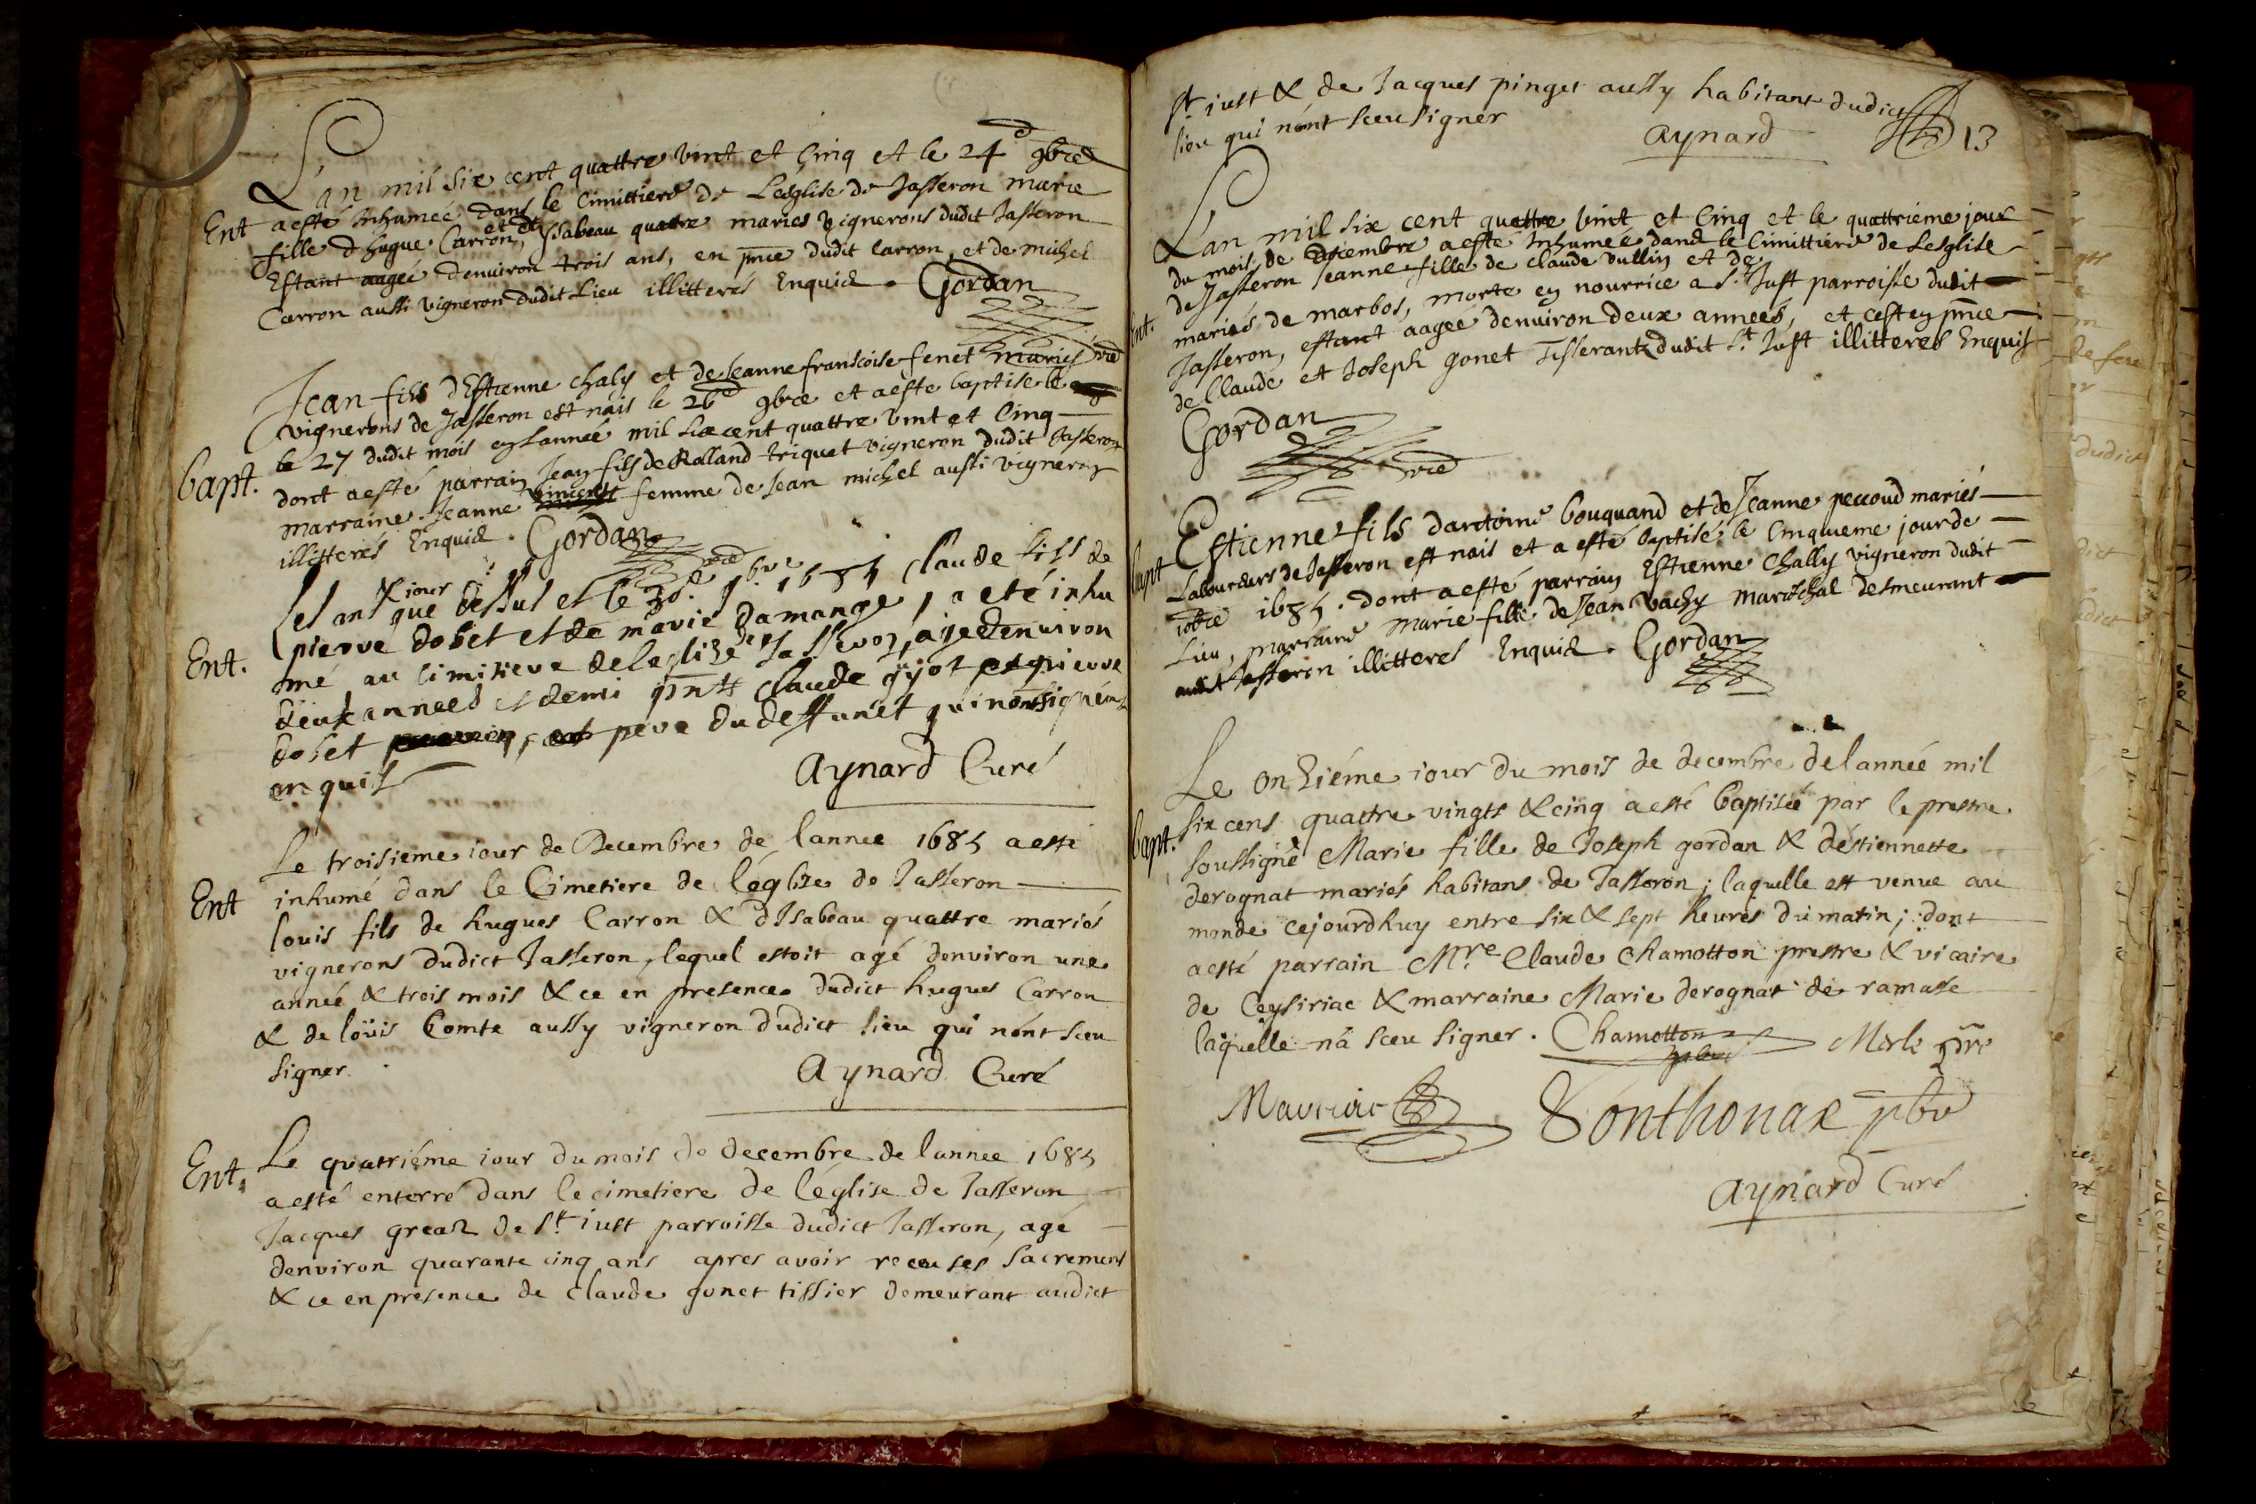 L'an mil six cent quattre vint et Cinq et le 24e 9bre
Ent aesté Inhumeé dans le Cimittiere de Lesglise de Jasseron marie
fille d hugue Carron, et dt Isabeau quattre mariés Vignerons dudit Jasseron
Estant aageé denuiron trois ans, en pnce dudit Carron, et de michel
Carron aussi vigneron dudit Lieu illitterés Enquis. Gordan
Jean fils dEstienne chaly et de Jeanne francoise fenet mariés vre
vignerons de Jasseron est nais le 26e 9bre et aesté baptisé le
le 27 dudit mois en Lanneé mil sixcent quattre vint et Cinq
bapt. dont aesté parrain Jean fils de Roland triquet vigneron dudit Jasseron
marraine Jeanne vincent femme de Jean michel aussi vigneron
illitterés Enquis. Gordan vre
Les an & jour que dessus et le 30e 9bre 1685 Claude fils de
Ent. pierre dobet et de marie damange, a eté inhu
mé au cimitiere de leglize de Jasseron, age denuiron
deux anneed et demi pnts claude gyot et pierre
dobet pere du deffunct qui nont signé
enquis
Aynard Curé
Le troisieme iour de Decembre de lannee 1685 aesté
Ent inhumé dans le Cimetiere de léglize de Jasseron
louis fils de hugues Carron & dIsabeau quattre mariés
vignerons dudict Jasseron, lequel estoit agé denviron une
année & trois mois & ce en presence dudict hugues Carron
& de loüis Comte aussy vigneron dudict lieu qui nónt sceu
signer.
Aynard Curé
Ent. Le quatriéme iour du mois de decembre de lannee 1685
aesté enterré dans le cimetiere de léglise de Jasseron
Jacques grea de st iust parroisse dudict Jasseron, agé
denviron quarante cinq ans apres avoir receu ses sacremens
& ce en presence de claude gonet tissier demeurant audict
st iust & de Jacques pinget aussy habitant dudict
lieu qui nónt sceu signer
Aynard
13
Lan mil six cent quattre vint et Cinq et le quattrieme jour
du mois de decembre aesté Inhumeé dans le Cimittiere de Lesglise
de Jasseron Jeanne fille de claude vullin et de
Ent. mariés de marbos, morte en nourrice a st Just parroisse dudit
Jasseron, estant aageé denuiron deux anneés, et cest en pnce
de Claude et Joseph gonet Tisserants dudit st Just illitteres Enquis
Gordan
vre
Estienne fils dantoine bouquand et de Jeanne peccoud mariés
bapt Laboureurs de Jasseron est nais et a esté baptisé le Cinquieme jour de
10bre 1685. dont aesté parrain Estienne Chally vigneron dudit
Lieu, marraine marie fille de Jean vachy mareschal desmeurant
audit Jasseron illitteres Enquis. Gordan
Le onziéme iour du mois de decembre de lannée mil
six cens quattre vingts & cinq aesté baptisée par le prestre
bapt. soussigné Marie fille de Joseph gordan & déstiennette
derognat mariés habitans de Jasseron; laquelle est venue au
monde cejourdhuy entre six & sept heures du matin; dont
aesté parrain Mre Claude Chamotton prestre & vicaire
de Ceysiriac & marraine Marie derognat de ramasse
laquelle ná sceu signer. Chamotton
Merle
Sonthonax pbr
Aynard Curé